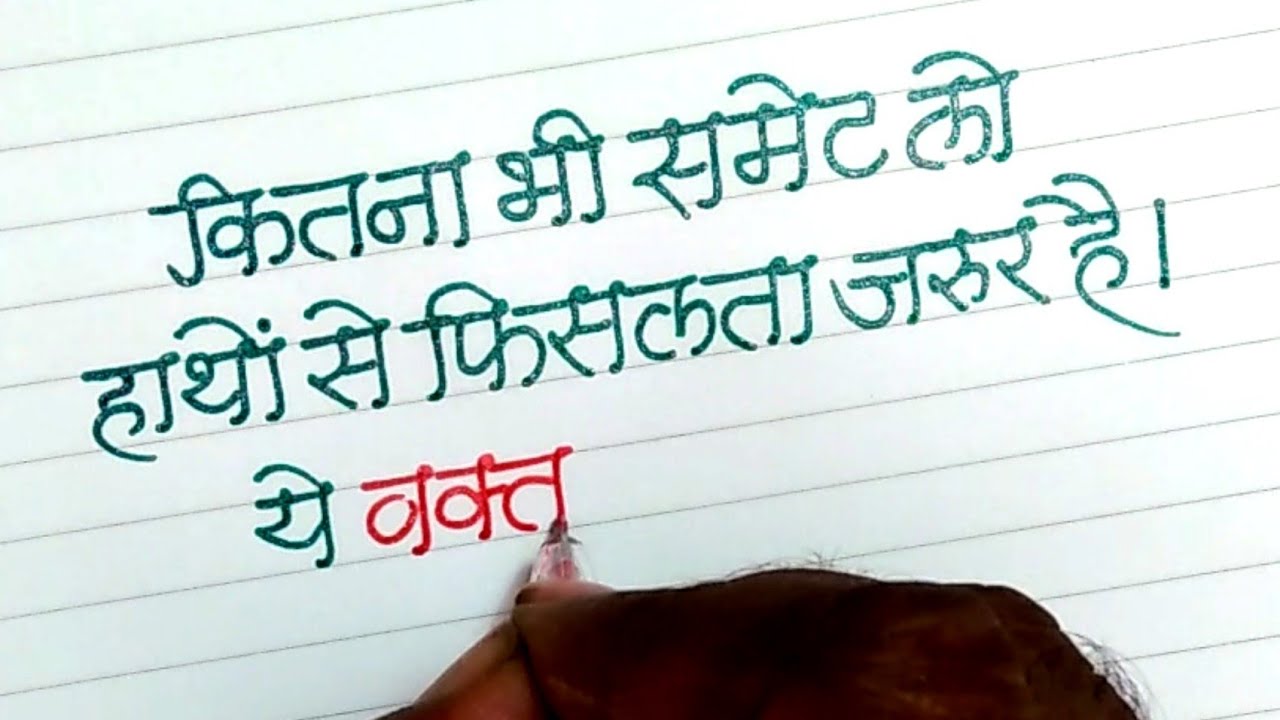 कितना भी समेट लो
हाथों से फिसलता जरुर है।
ये वक्त